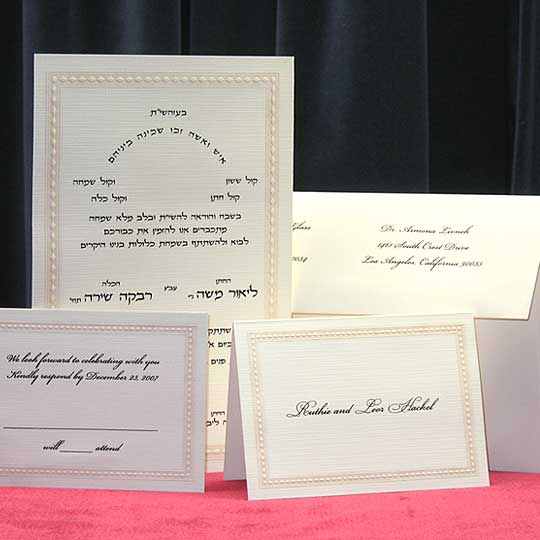 בעזהשי"ת
איש ואשה זכו שכינה ביניהם
קול ששון וקול שמחה
קול חתן וקול כלה
בשבח והודאה להשי"ת ובלב מלא שמחה
מתכבדים אנו להזמין את כבודכם
לבוא ולהשתתף בשמחת כלולות בנינו היקרים
החתן
ליאור משה
עב"ג
הכלה
רבקה שירה תחי'
Dr. Armona Livneh
1461 South Crest Drive
Los Angeles, California 90035
We look forward to celebrating with you
Kindly respond by December 23, 2007
will ______ attend
Ruthie and Leor Hackel